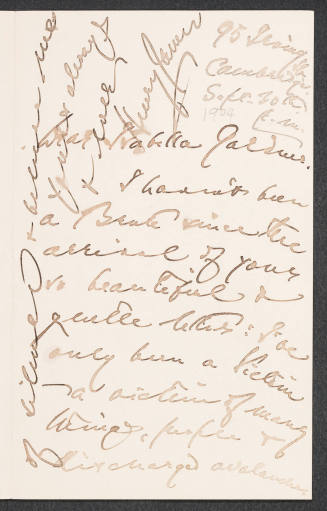 95 Irving St.
Cambridge
Sept. 20th
1904
Dear Isabella Gardner.
I haven't been
a Brute since the
arrival of your
so beautiful &
gentle letter: I've
only been a Victim
– a victim of many
things, people &
discharged avalanches
of silence & believe me
yours always
& ever
Henry James